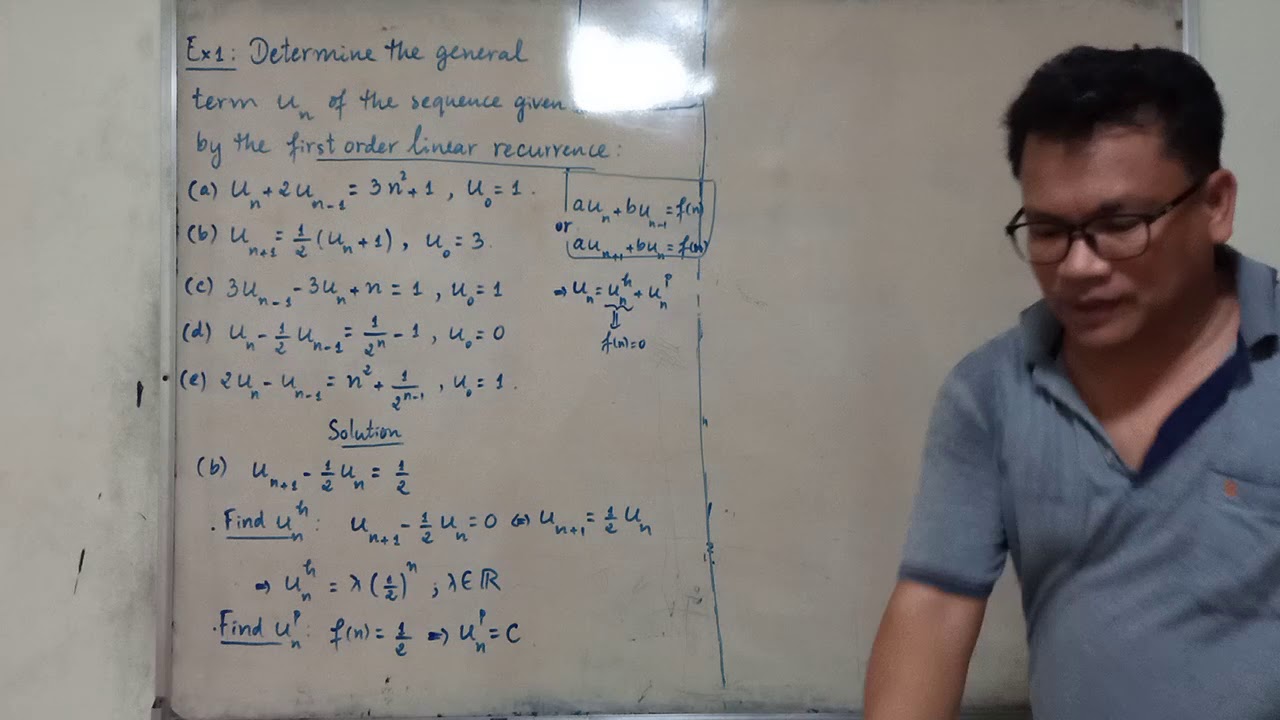 Ex1: Determine the general
term uₙ of the sequence given
by the first order linear recurrence:
(a) uₙ + 2uₙ₋₁ = 3n² + 1 , u₀ = 1.
(b) uₙ₊₁ = 1/2 (uₙ + 1) , u₀ = 3.
(c) 3uₙ₋₁ - 3uₙ + n = 1 , u₀ = 1
(d) uₙ - 1/2 uₙ₋₁ = 1/2ⁿ - 1 , u₀ = 0
(e) 2uₙ - uₙ₋₁ = n² + 1/2ⁿ⁻¹ , u₀ = 1.
auₙ + buₙ₋₁ = f(n)
or
auₙ₊₁ + buₙ = f(n)
⇒ uₙ = uₙʰ + uₙᵖ
⇓
f(n) = 0
Solution
(b) uₙ₊₁ - 1/2 uₙ = 1/2
. Find uₙʰ: uₙ₊₁ - 1/2 uₙ = 0 ⇔ uₙ₊₁ = 1/2 uₙ
⇒ uₙʰ = λ(1/2)ⁿ ; λ ∈ ℝ
. Find uₙᵖ: f(n) = 1/2 ⇒ uₙᵖ = C